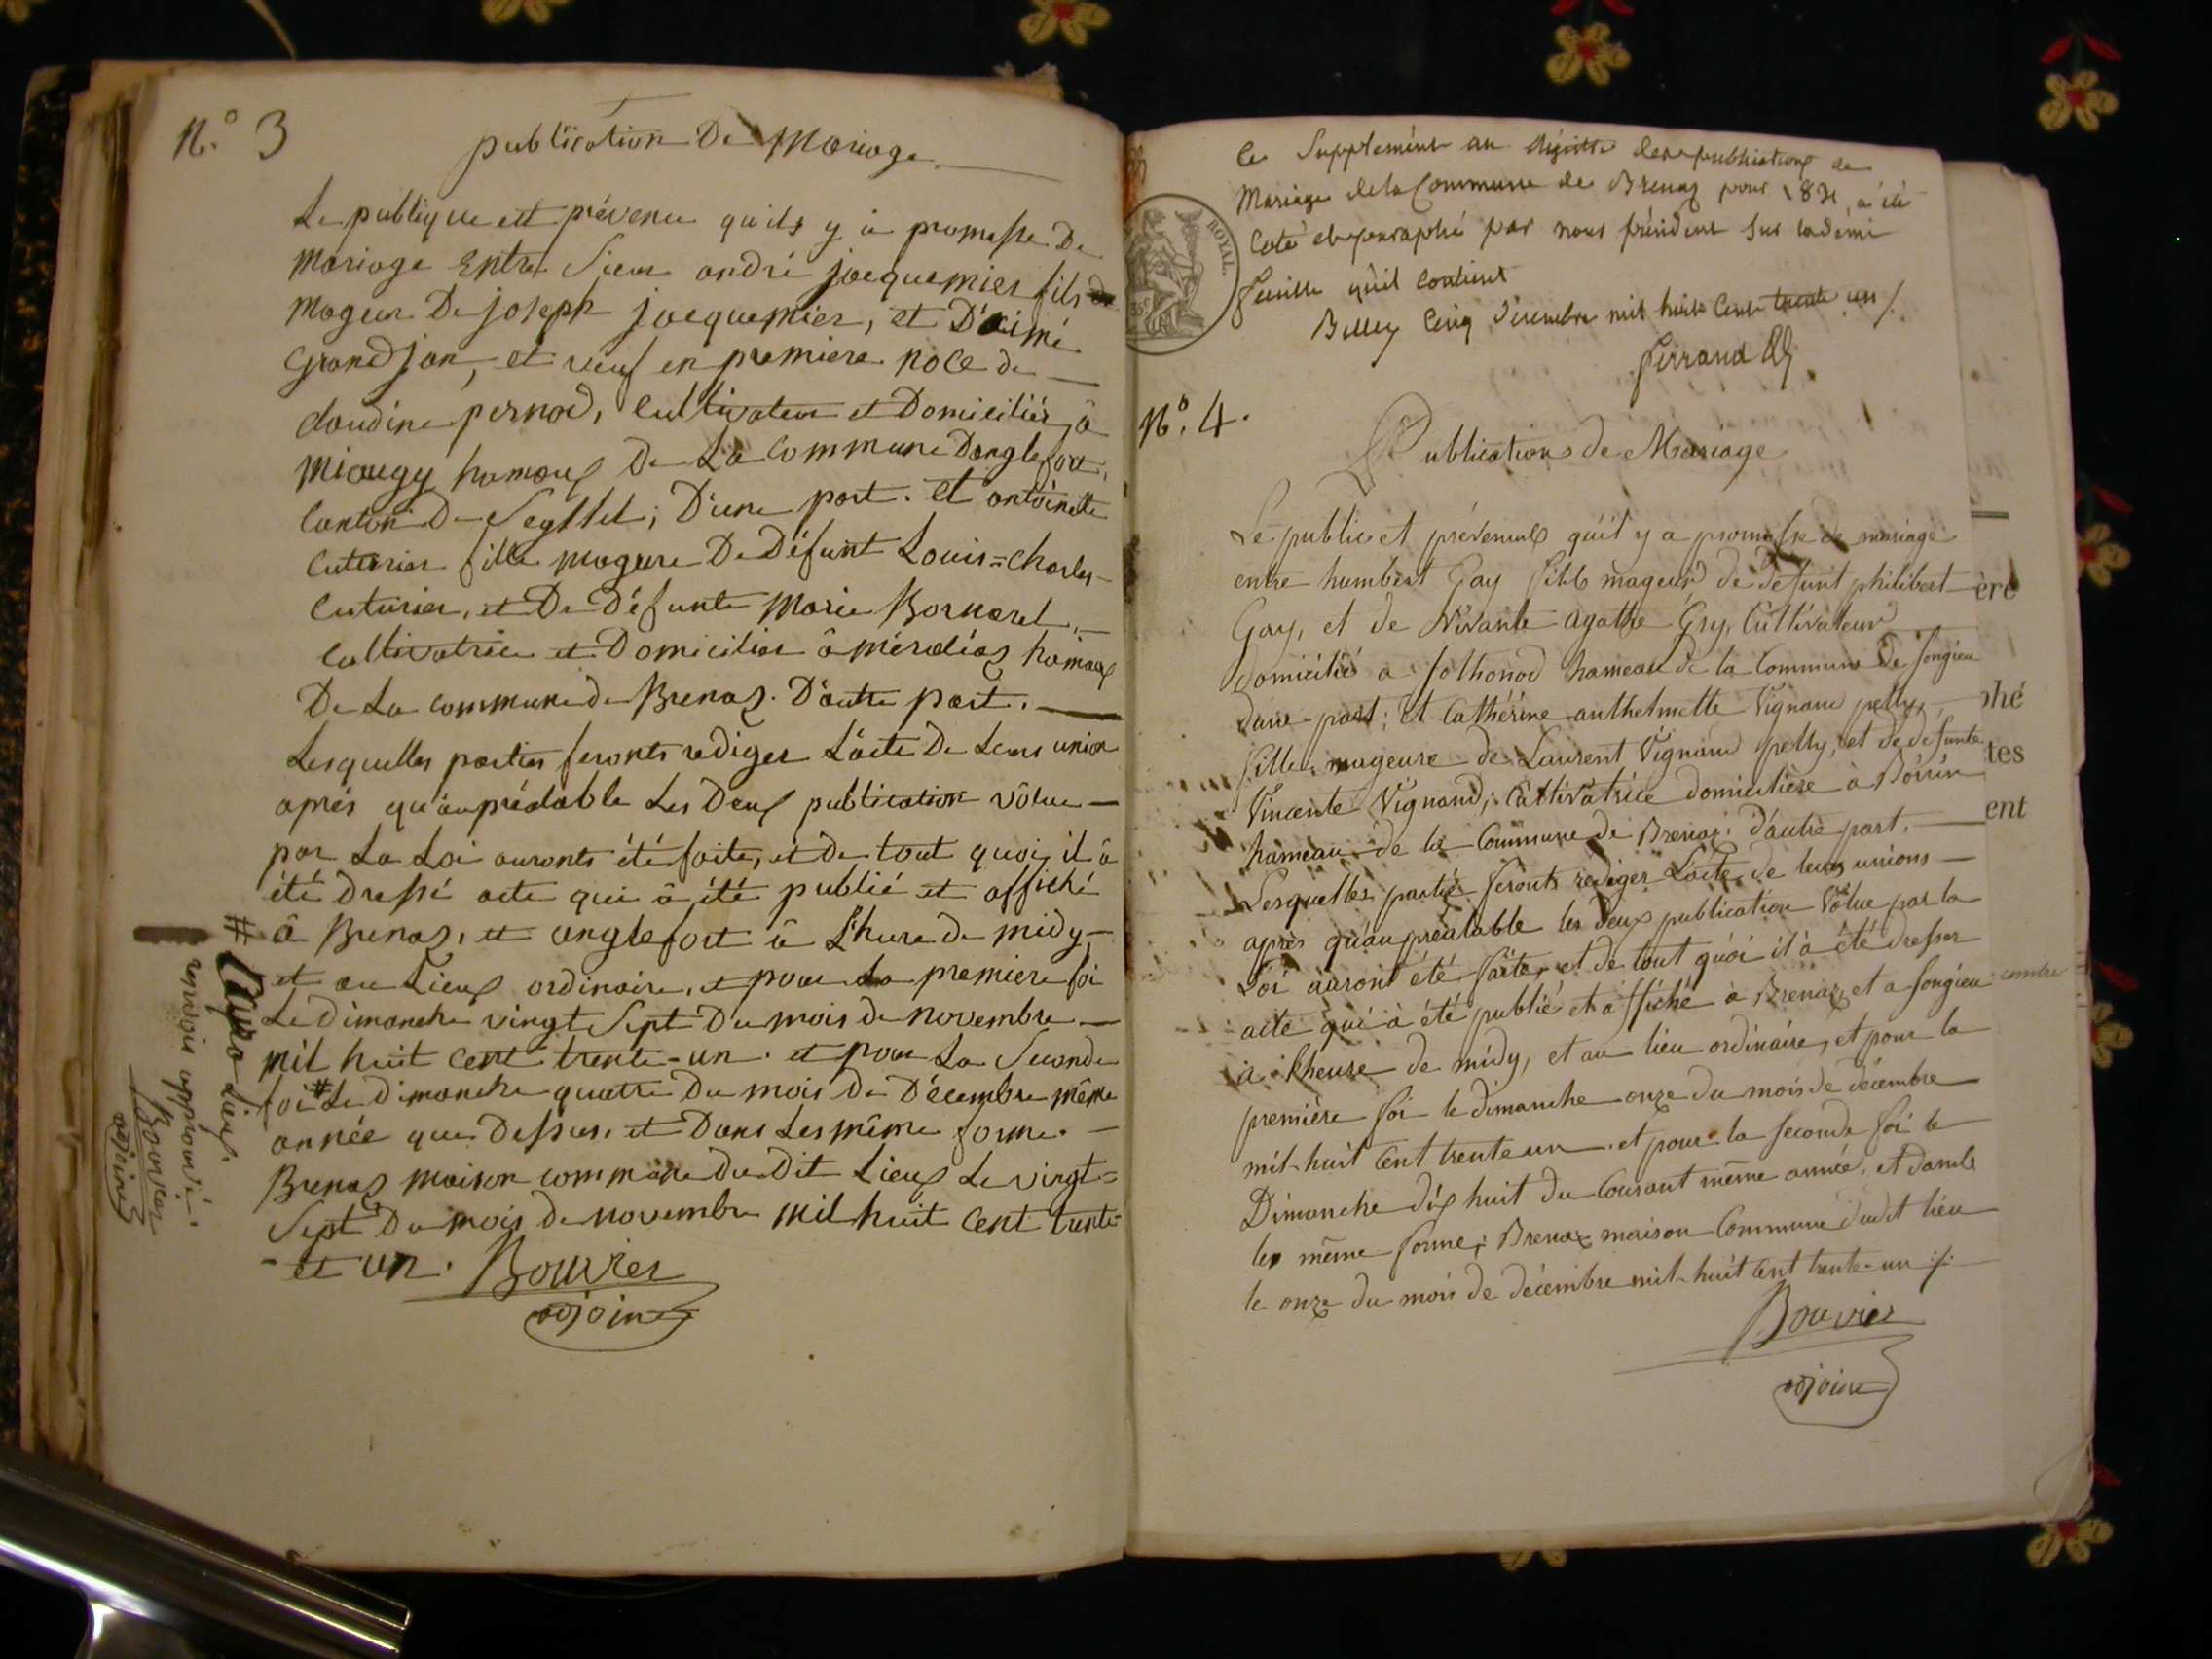 N.° 3
publication De Mariage
Le publique est prévenu qu'ils y à promesse De
mariage Entre Sieur andré jacquemier fils
mageur De joseph jacquemier, et D'aimé
Grandjan, et veuf en premiere noce de
claudine pernod, Cultivateur et Domiciliés à
miaugy hamaux De La Commune Danglefort,
Canton De Seyssel; D'une part. Et antoinette
Cuturier fille mageure De Défunt Louis=Charles
Cuturier, et De Défunte Marie Bornarel,
Cultivatrice et Domicilier à méraléaz hamaux
De La commune de Brenaz. D'autre part.
Lesquelles parties feronts rediger L'acte De Leurs union
aprés qu'auprédable Les Deux publication vôlue
par La Loi auronts été faite, et de tout quoi, il à
été Dressé acte qui à été publié et affiché
à Brenaz, et anglefort à L'hure De midy
et au Lieux ordinaire, et pour La premiere foi
Le Dimanche vingt Sept Du mois de novembre
mil huit cent trente-un. et pour La Seconde
foi # Le Dimanche quatre Du mois De Décembre même
année que Dessus, et Dans Les même forme.
Brenaz maison commune Du Dit Lieux Le vingt=
Sept Du mois de novembre mil huit Cent trente-
- et un. Bouvier
adjoint
# aura Lieux
renvoie approuvé.
Bouvier
adjoint
Ce Supplément au Régistre des publications de
Mariage de la Commune de Brenaz pour 1831, a été
Coté et paraphé par nous président sur la demi
feuille qu'il contient
Belley Cinq Décembre mil huit Cent trente un /.
Ferrand
ROYAL.
N.° 4.
Publications de Mariage
Le public et prévenus qu'il y a promesse de mariage
entre humbert Gay fils mageur de defunt philibert
Gay, et de Vivante agathe Gry, Cultivateur
domicilié a Sothonod hameau de la Commune de Songieu
d'une part; et Cathérine anthelmette Vignand pelly,
fille mageure de Laurent Vignand pelly, et de defunte
Vincente Vignand; Cultivatrice domicilière à Boirin
hameau de la Commune de Brenaz; d'autre part.
Lesquelles partie feronts rediger L'acte de leurs unions
aprés qu'aupréalable les deux publication Vôlue par la
Loi auront été faite, et de tout quoi il à été dresser
acte qui à été publié et affiché à Brenaz et a Songieu
à l'heure de midy, et au lieu ordinaire, et pour la
première foi le dimanche onze du mois de décembre
mil-huit Cent trente un. et pour la seconde foi le
Dimanche dix huit du Courant même année, et dans
les même forme; Brenaz maison Commune dudit lieu
le onze du mois de décembre mil-huit Cent trente-un ./.
Bouvier
adjoint
ère
phé
tes
ent